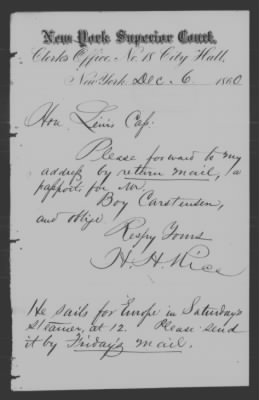 New York Superior Court,
Clerk's Office No. 18 City Hall,
New York Dec 6 1860
Hon Lewis Cass
Please forward to my
address by return mail, a
passport for Mr.
Boy Carstensen,
and oblige
Respy Yours
H. H. Rice
He sails for Europe in Saturday's
steamer, at 12. Please send
it by Friday's mail.